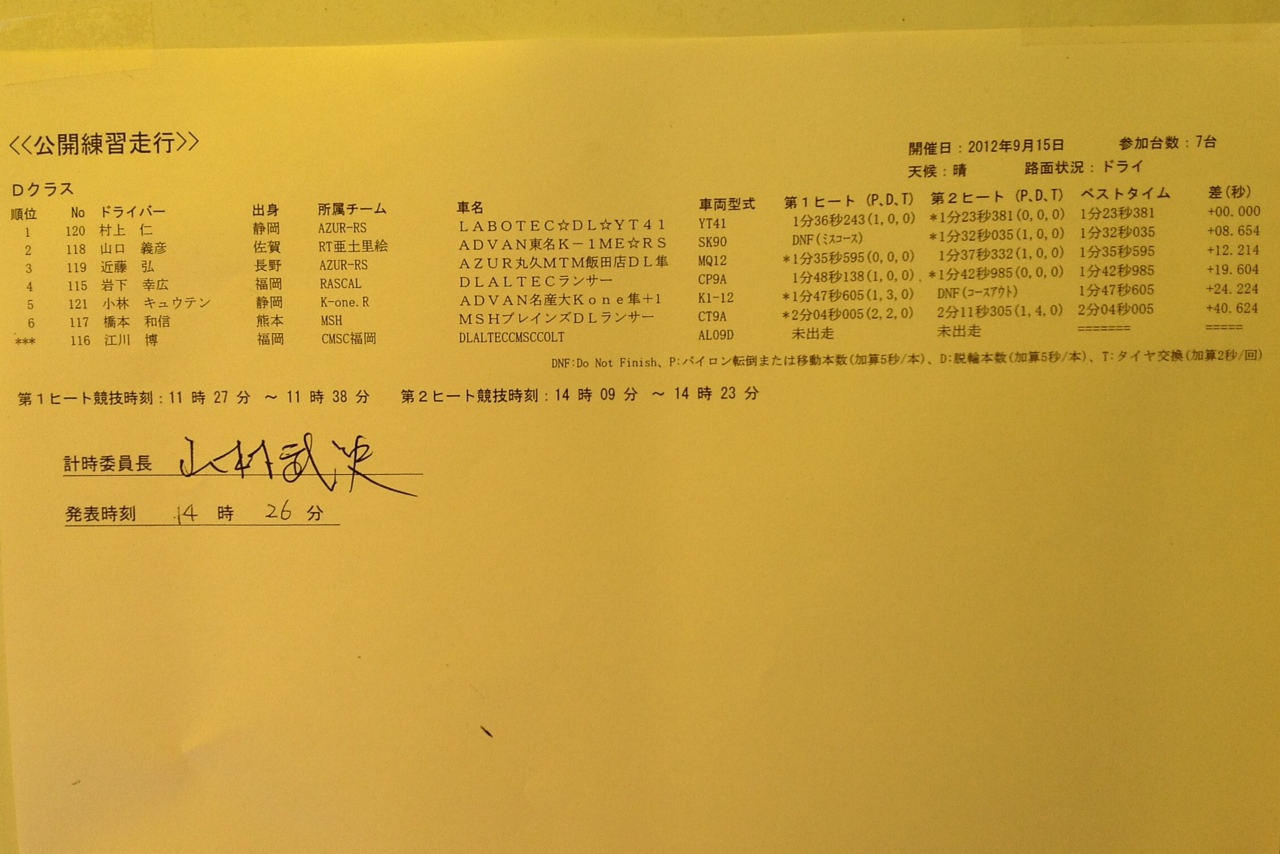 <<公開練習走行>>
開催日：2012年9月15日 参加台数：7台
天候：晴 路面状況：ドライ
Ｄクラス
順位 No ドライバー 出身 所属チーム 車名 車両型式 第１ヒート (P,D,T) 第２ヒート (P,D,T) ベストタイム 差(秒)
1 120 村上 仁 静岡 AZUR-RS ＬＡＢＯＴＥＣ☆ＤＬ☆ＹＴ４１ YT41 1分36秒243(1,0,0) *1分23秒381(0,0,0) 1分23秒381 +00.000
2 118 山口 義彦 佐賀 RT亜土里絵 ＡＤＶＡＮ東名Ｋ－１ＭＥ☆ＲＳ SK90 DNF(ミスコース) *1分32秒035(1,0,0) 1分32秒035 +08.654
3 119 近藤 弘 長野 AZUR-RS ＡＺＵＲ丸久ＭＴＭ飯田店ＤＬ隼 MQ12 *1分35秒595(0,0,0) 1分37秒332(1,0,0) 1分35秒595 +12.214
4 115 岩下 幸広 福岡 RASCAL ＤＬＡＬＴＥＣランサー CP9A 1分48秒138(1,0,0) *1分42秒985(0,0,0) 1分42秒985 +19.604
5 121 小林 キュウテン 静岡 K-one.R ＡＤＶＡＮ名産大Ｋｏｎｅ隼+１ K1-12 *1分47秒605(1,3,0) DNF(コースアウト) 1分47秒605 +24.224
6 117 橋本 和信 熊本 MSH ＭＳＨブレインズＤＬランサー CT9A *2分04秒005(2,2,0) 2分11秒305(1,4,0) 2分04秒005 +40.624
*** 116 江川 博 福岡 CMSC福岡 DLALTECCMSCCOLT AL09D 未出走 未出走 ======= =====
DNF:Do Not Finish、P:パイロン転倒または移動本数(加算5秒/本)、D:脱輪本数(加算5秒/本)、T:タイヤ交換(加算2秒/回)
第１ヒート競技時刻：11 時 27 分 ～ 11 時 38 分 第２ヒート競技時刻：14 時 09 分 ～ 14 時 23 分
計時委員長 山村武史
発表時刻 14 時 26 分